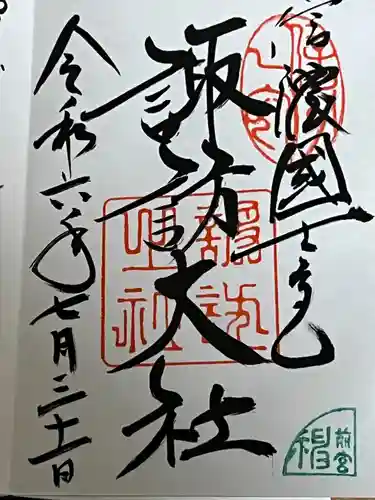 信濃國一之宮
諏訪大社
令和六年七月三十一日
諏訪
大社
前宮